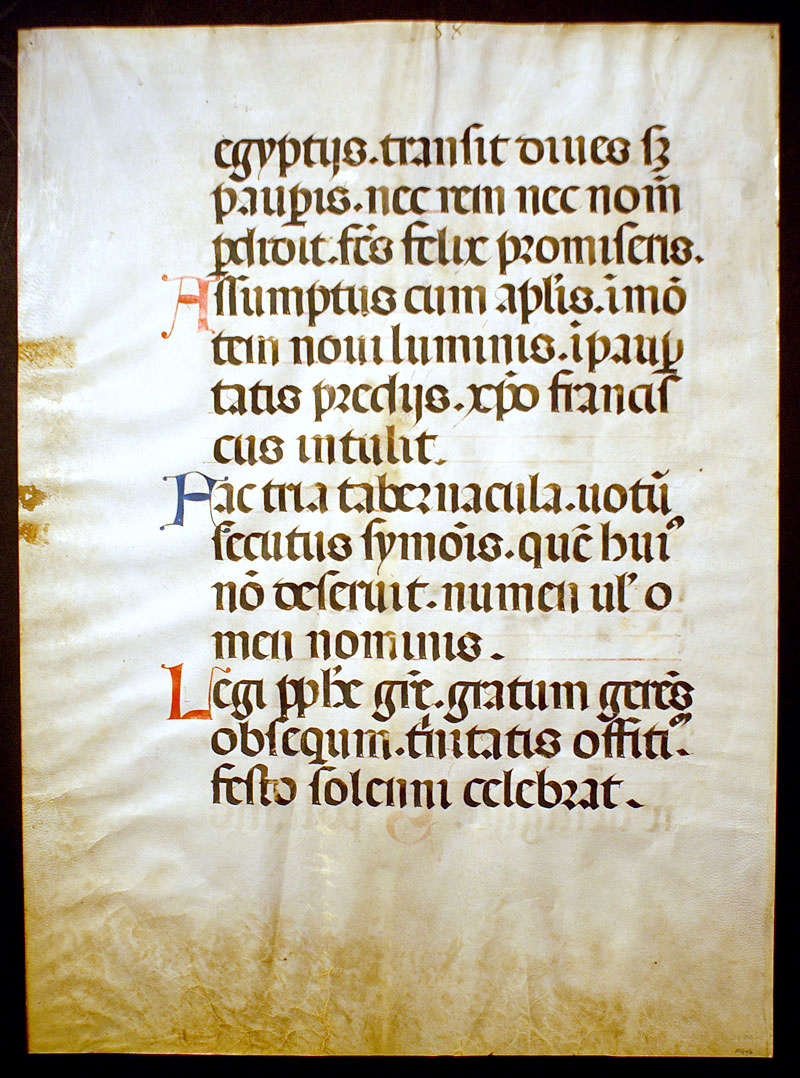 58
egyptijs. transit diues sꝫ
paup̱is. nec rem nec nom̄
ꝑdidit. fc̄s felix promiseris.
Assumptus cum apl̓is. i mō
tem noui luminis. i paup̱
tatis predijs. xp̄o francis
cus intulit.
Fac tria tabernacula. uotū
secutus symōis. quē huiꝰ
nō deseruit. numen ul̓ o
men nominis.
Legi ꝓph̓e gr̄e. gratum gerēs
obsequm. t̓nitatis offitiꝰ.
festo solenni celebrat.